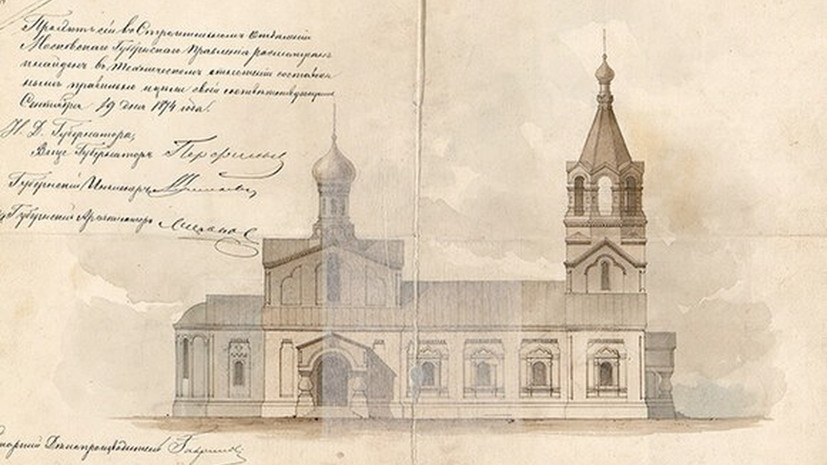 Проектъ сей въ Строительномъ Отделенiи
Московскаго Губернскаго Правленiя разсматриванъ
и найденъ въ техническомъ отношенiи составлен
нымъ правильно и цѣли своей соотвѣтствующимъ
Сентября 19 дня 1874 года.
И. Д. Губернатора,
Вице Губернаторъ
Губернскiй Инженеръ
Губернскiй Архитекторъ
Дѣлопроизводитель Гаврилов